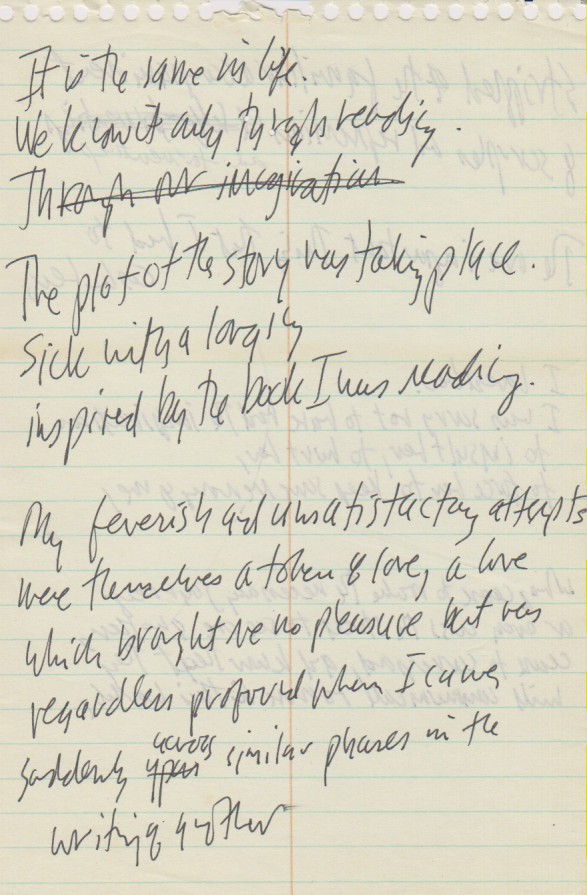 It is the same in life.
We know it only through reading.
Through our imagination
The plot of the story was taking place.
Sick with a longing
inspired by the book I was reading.
My feverish and unsatisfactory attempts
were themselves a token of love, a love
which brought me no pleasure but was
regardless profound when I came
suddenly upon across similar phrases in the
writing another